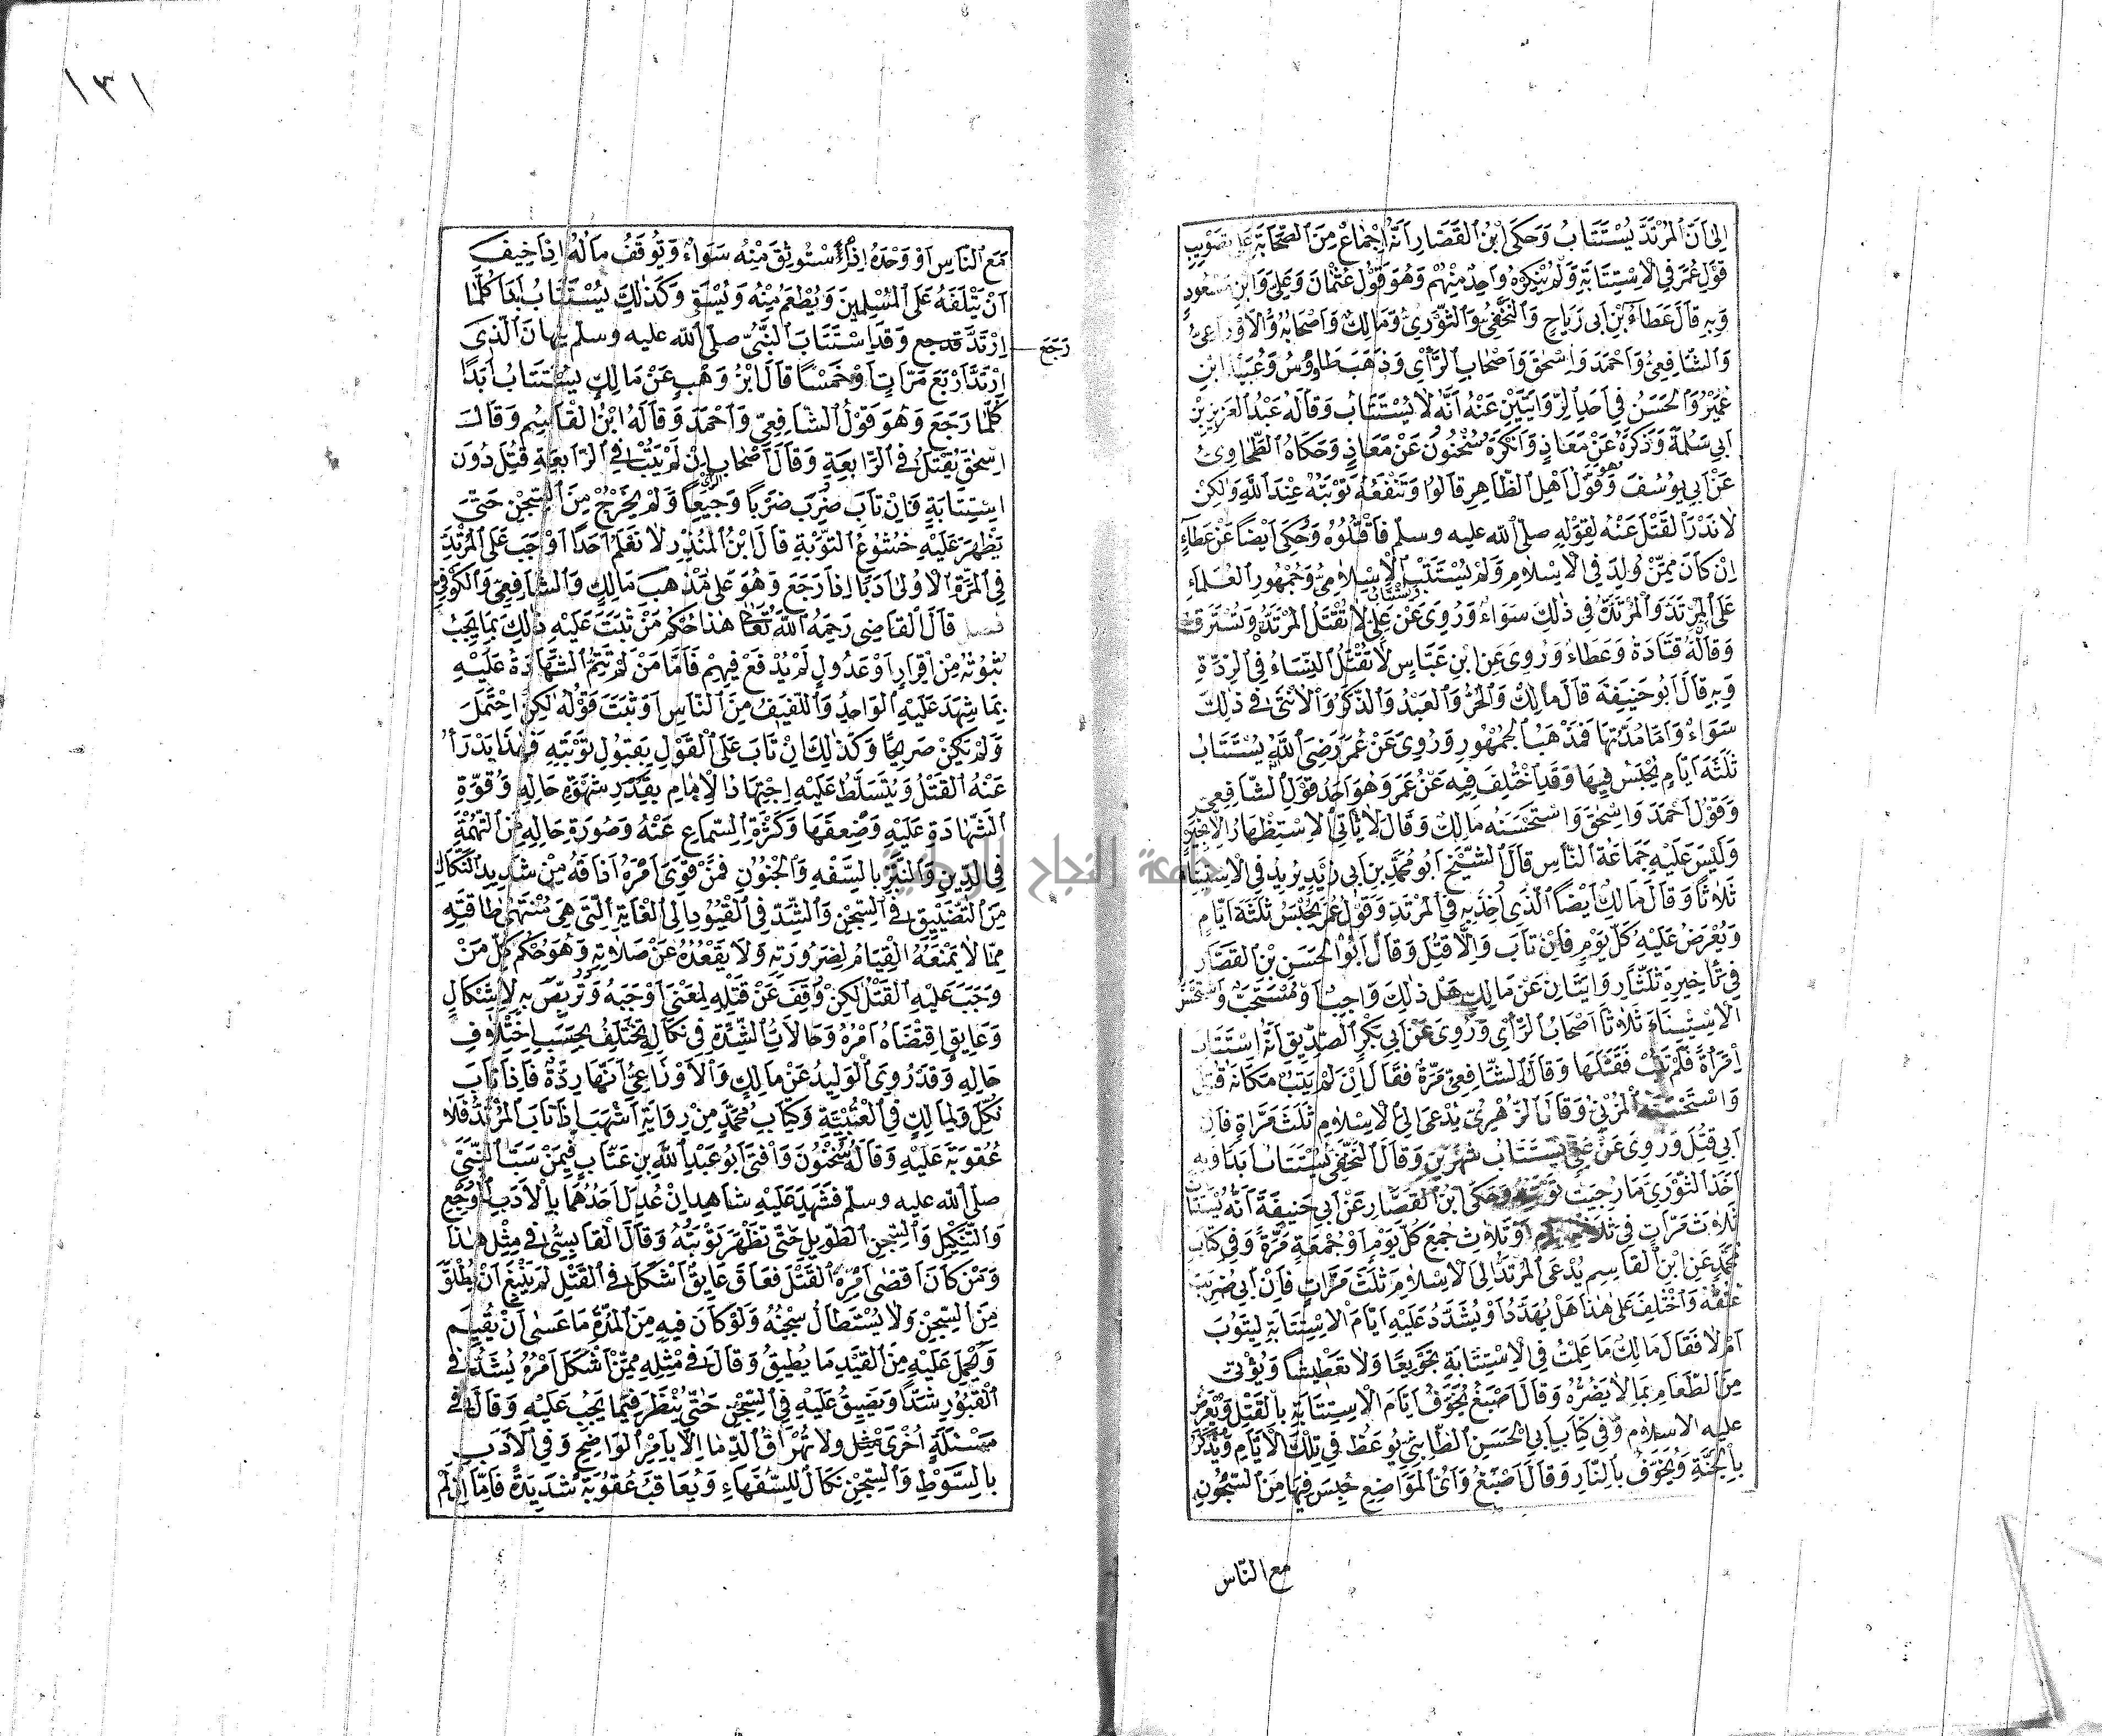 إلى أن المرتد يستتاب وحكى ابن القصار أنه إجماع من الصحابة على تصويب
قول عمر في الاستتابة ولم ينكره واحد منهم وهو قول عثمان وعلي وابن مسعود
وبه قال عطاء بن ابي رباح والنخعي والثوري ومالك واصحابه والاوزاعي
والشافعي واحمد واسحق واصحاب الرأي وذهب طاووس وعبيد ابن
عمير والحسن في احدى الروايتين عنه أنه لا يستتاب وقاله عبد العزيز بن
ابي سلمة وذكره عن معاذ وانكره سحنون عن معاذ وحكاه الطحاوي
عن ابي يوسف وهو قول اهل الظاهر قالوا وتنفعه توبته عند الله ولكن
لا ندرأ القتل عنه لقوله صلى الله عليه وسلم فاقتلوه وحكى أيضا عن عطاء
ان كان ممن ولد في الاسلام ولم يستتب الاسلامي وجمهور العلماء
على المرتد والمرتدة في ذلك سواء وروى عن علي لا تقتل المرتدة وتسترق
وقاله قتادة وعطاء وروى عن ابن عباس لا تقتل النساء في الردة
وبه قال ابو حنيفة قال مالك والحر والعبد والذكر والانثى في ذلك
سواء واما مدتها فمذهب الجمهور وروى عن عمر رضي الله يستتاب
ثلثة ايام يحبس فيها وقد اختلف فيه عن عمر وهو احد قول الشافعي
وقول احمد واسحق واستحسنه مالك وقال لا يأتي الاستظهار الا بخير
وليس عليه جماعة الناس قال الشيخ ابو محمد بن ابي زيد يريد في الاستيناء
ثلاثا وقال مالك ايضا الذي اخذ به في المرتد وقول عمر يحبس ثلثة ايام
ويعرض عليه كل يوم فإن تاب وإلا قتل وقال ابو الحسن بن القصار
في تأخيره ثلثا روايتان عن مالك هل ذلك واجب او مستحب واستحسن
الاستيناء ثلاثا اصحاب الرأي وروى عن ابي بكر الصديق انه استتاب
امرأة فلم تتب فقتلها وقال الشافعي مرة فقال ان لم يتب مكانه قتل
واستحسنه المزني وقال الزهري يدعى الى الاسلام ثلث مرات فان
ابي قتل وروى عن علي يستتاب شهرين وقال النخعي يستتاب ابدا وبه
اخذ الثوري ما رجيت توبته وحكى ابن القصار عن ابي حنيفة انه يستتاب
ثلاث مرات في ثلاثة ايام او ثلاث جمع كل يوم او جمعة مرة وفي كتاب
محمد عن ابن القاسم يدعى المرتد الى الاسلام ثلث مرات فان ابي ضربت
عنقه واختلف على هذا هل يهدد او يشدد عليه ايام الاستتابة ليتوب
ام لا فقال مالك ما علمت في الاستتابة تجويعا ولا تعطيشا ويؤتى
من الطعام بما لا يضره وقال اصبغ يخوف ايام الاستتابة بالقتل ويعرض
عليه الاسلام وفي كتاب ابي الحسن الطابثي يوعظ في تلك الايام ويذكر
بالجنة ويخوف بالنار وقال اصبغ وأي المواضع حبس فيها من السجون
مع الناس
١٣١
مع الناس او وحده إذا استوثق منه سواء ويوقف ماله اذا خيف
أن يتلفه على المسلمين ويطعم منه ويسقى وكذلك يستتاب ابدا كلما
ارتد قد رجع وقد استتاب النبي صلى الله عليه وسلم نبهان الذي
رجع
ارتد اربع مرات او خمسا قال ابن وهب عن مالك يستتاب أبدا
كلما رجع وهو قول الشافعي واحمد وقاله ابن القاسم وقال
اسحق يقتل في الرابعة وقال اصحاب الرأي ان لم يتب في الرابعة قتل دون
استتابة فان تاب ضرب ضربا وجيعا ولم يخرج من السجن حتى
يظهر عليه خشوع التوبة قال ابن المنذر لا نعلم احدا اوجب على المرتد
في المرة الاولى ادبا اذا رجع وهو على مذهب مالك والشافعي والكوفي
فصل قال القاضي رحمه الله تعالى هذا حكم من ثبت عليه ذلك بما يجب
ثبوته من اقرار او عدول لم يدفع فيهم فاما من لم تتم الشهادة عليه
بما شهد عليه الواحد واللفيف من الناس او ثبت قوله لكن احتمل
ولم يكن صريحا وكذلك ان تاب على القول بقبول توبته فهذا يدرأ
عنه القتل ويتسلط عليه اجتهاد الامام بقدر شهرة حاله وقوة
الشهادة عليه وضعفها وكثرة السماع عنه وصورة حاله من التهمة
في الدين والنبز بالسفه والجنون فمن قوى امره اذاقه من شديد النكال
من التضييق في السجن والشد في القيود الى الغاية التي هي منتهى طاقته
مما لا يمنعه القيام لضرورته ولا يقعده عن صلاته وهو حكم كل من
وجب عليه القتل لكن وقف عن قتله لمعنى اوجبه وتربص به لاشكال
وعايق اقتضاه امره وحالات الشدة في نكاله تختلف بحسب اختلاف
حاله وقد روى الوليد عن مالك والاوزاعي أنها ردة فاذا تاب
نكل ولمالك في العتبية وكتاب محمد من رواية اشهب اذا تاب المرتد فلا
عقوبة عليه وقاله سحنون وافتى ابو عبد الله بن عتاب فيمن سب النبي
صلى الله عليه وسلم فشهد عليه شاهدان عدل احدهما بالأدب الوجيع
والتنكيل والسجن الطويل حتى تظهر توبته وقال القابسي في مثل هذا
ومن كان اقصى امره القتل فعاق عايق اشكل في القتل لم ينبغ أن يطلق
من السجن ولا يستطال سجنه ولو كان فيه من المدة ما عسى أن يقيم
ويحمل عليه من القيد ما يطيق وقال في مثله ممن اشكل امره يشد في
القيود شدا ويضيق عليه في السجن حتى ينظر فيما يجب عليه وقال في
مسئلة اخرى مثل ولا تهراق الدماء الا بالأمر الواضح وفي الأدب
بالسوط والسجن نكال للسفهاء ويعاقب عقوبة شديدة فاما ان لم
جامعة النجاح الوطنية